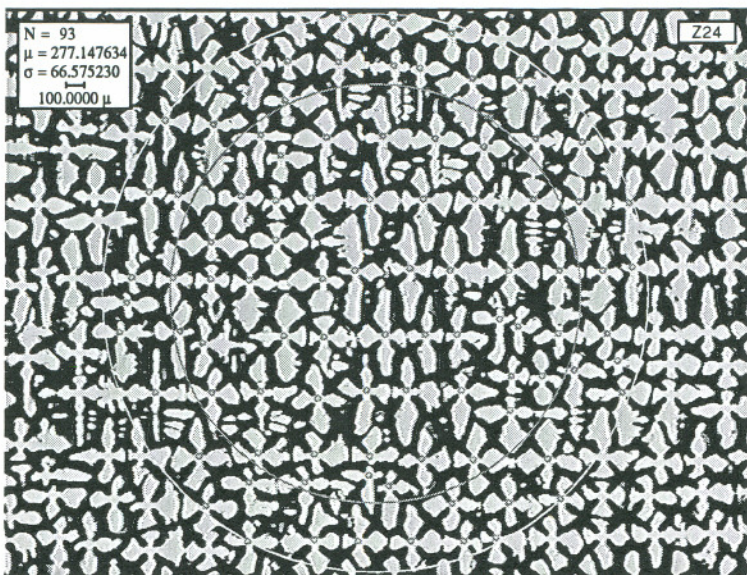 N = 93
μ = 277.147634
σ = 66.575230
100.0000 μ
Z24